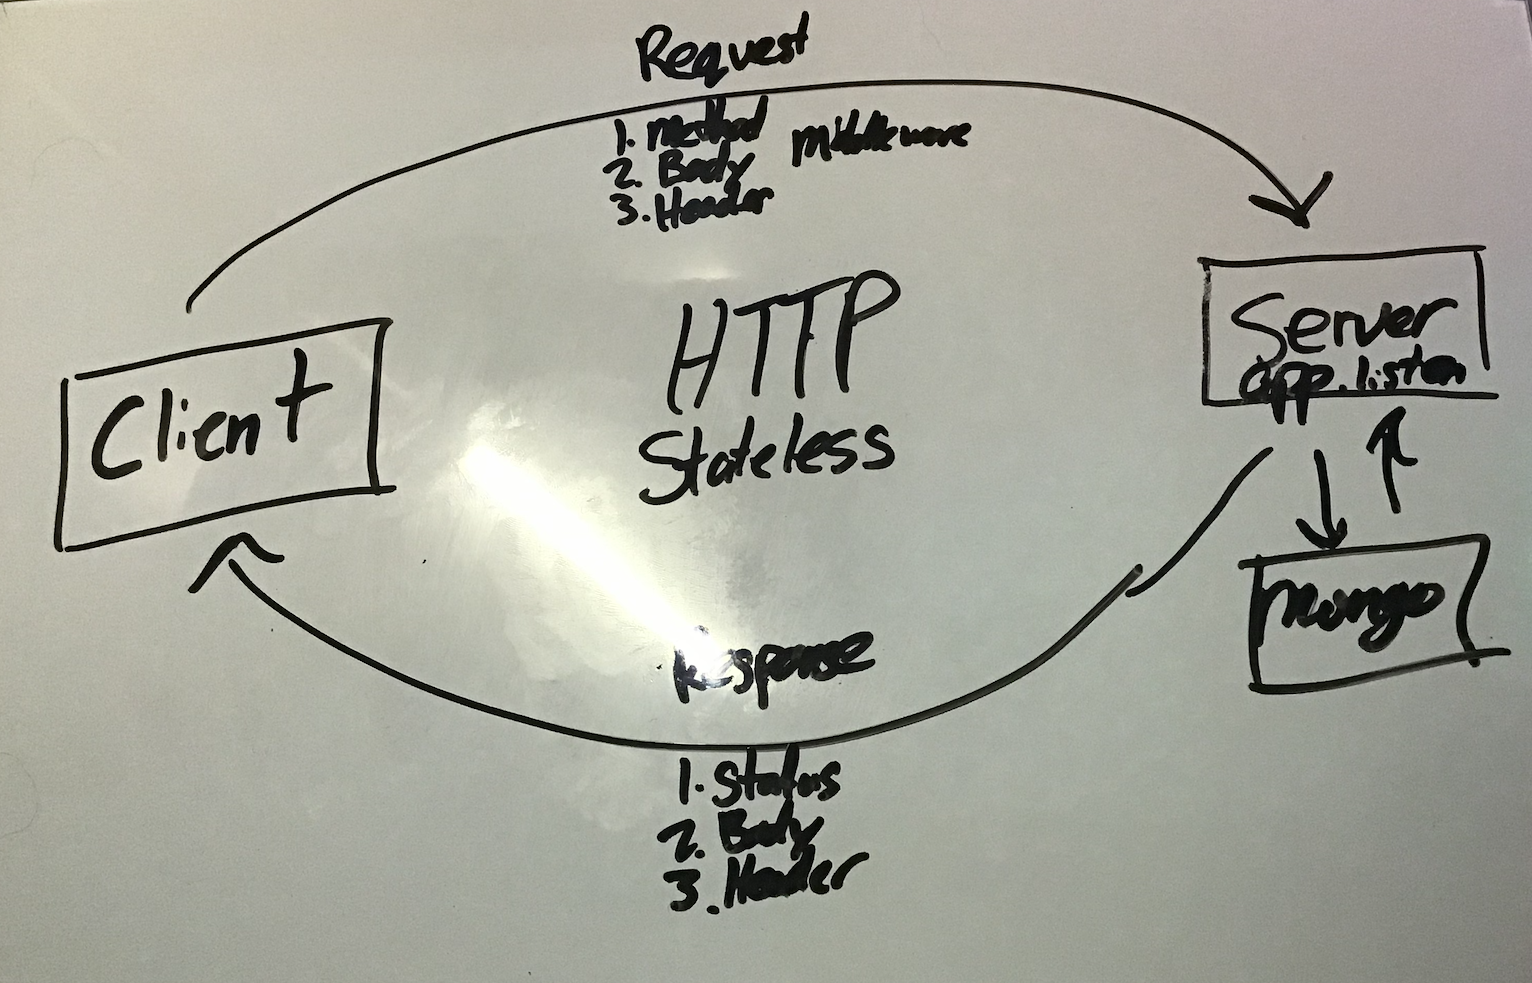 Request
1. Method
2. Body
3. Header
Middleware
HTTP
Stateless
Client
Server
app.listen
Mongo
Response
1. Status
2. Body
3. Header